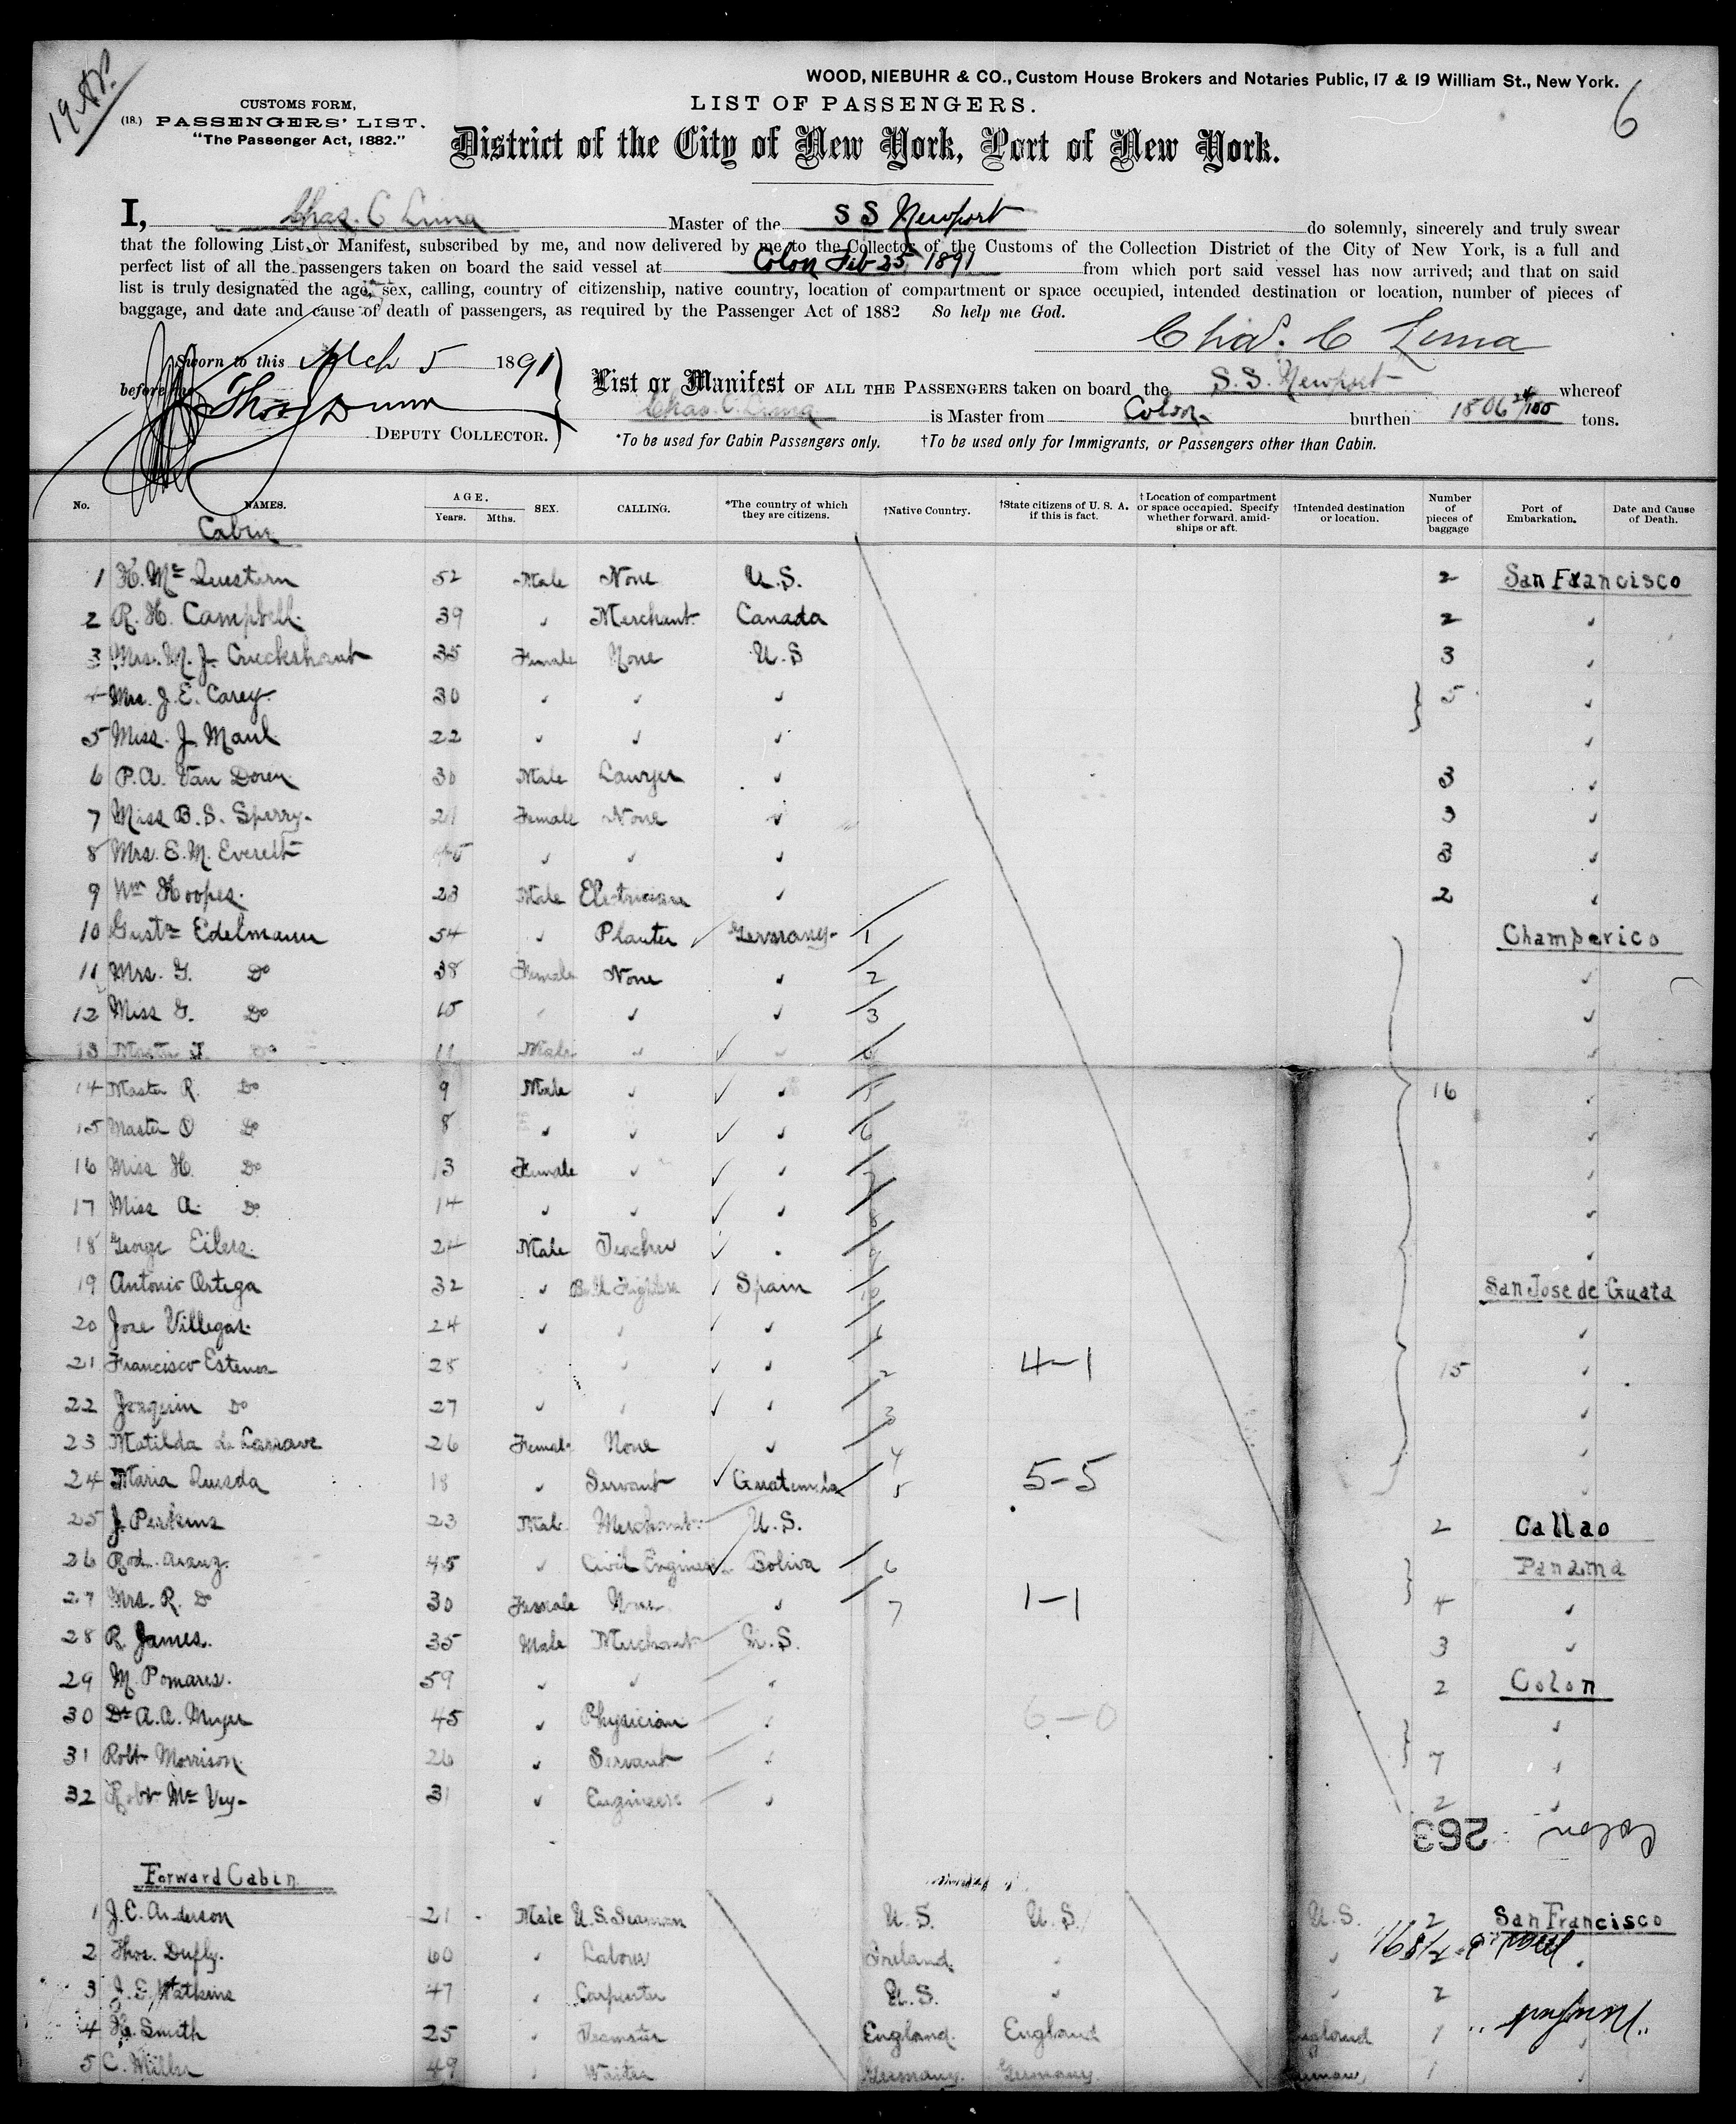 19 Ap.
WOOD, NIEBUHR & CO., Custom House Brokers and Notaries Public, 17 & 19 William St., New York.
6
CUSTOMS FORM,
(18.) PASSENGERS' LIST.
"The Passenger Act, 1882."
LIST OF PASSENGERS.
District of the City of New York, Port of New York.
I, Chas. C Lima Master of the S S Newport do solemnly, sincerely and truly swear
that the following List or Manifest, subscribed by me, and now delivered by me to the Collector of the Customs of the Collection District of the City of New York, is a full and
perfect list of all the passengers taken on board the said vessel at Colon Feb 25, 1891 from which port said vessel has now arrived; and that on said
list is truly designated the age, sex, calling, country of citizenship, native country, location of compartment or space occupied, intended destination or location, number of pieces of
baggage, and date and cause of death of passengers, as required by the Passenger Act of 1882 So help me God.
Chas. C Lima
Sworn to this Mch 5 1891
before me Thos Dunn
DEPUTY COLLECTOR.
List or Manifest OF ALL THE PASSENGERS taken on board the S.S. Newport whereof
Chas. C. Lima is Master from Colon burthen 1806 24/100 tons.
*To be used for Cabin Passengers only. †To be used only for Immigrants, or Passengers other than Cabin.
No. NAMES. AGE. Years. Mths. SEX. CALLING. *The country of which they are citizens. †Native Country. †State citizens of U. S. A. if this is fact. †Location of compartment or space occupied. Specify whether forward, amidships or aft. †Intended destination or location. Number of pieces of baggage Port of Embarkation. Date and Cause of Death.
Cabin
1 H. Mc Questern 52 Male None U.S. 2 San Francisco
2 R. H. Campbell 39 " Merchant Canada 2 "
3 Mrs. M. J. Cruckshank 35 Female None U.S 3 "
4 Mrs. J. E. Carey 30 " " " 5 "
5 Miss. J. Maul 22 " " " "
6 P. A. Van Doren 30 Male Lawyer " 3 "
7 Miss B. S. Sperry 21 Female None " 3 "
8 Mrs. E. M. Everett 45 " " " 3 "
9 Wm Hoopes 23 Male Electrician " 2 "
10 Gustv Edelmann 54 " Planter Germany 1 Champerico
11 Mrs. G. Do 38 Female None " 2 "
12 Miss G. Do 15 " " " 3 "
13 Master J. Do 11 Male " " "
14 Master R. Do 9 Male " " 5 16 "
15 Master O Do 8 " " " 6 "
16 Miss H. Do 13 Female " " 7 "
17 Miss A. Do 14 " " " 8 "
18 George Eilers 24 Male Teacher " 9 "
19 Antonio Ortega 32 " Bull Fighter Spain 10 San Jose de Guata
20 Jose Villegas 24 " " " 1 "
21 Francisco Estenos 28 " " 2 4-1 15 "
22 Joaquin Do 27 " " " 3 "
23 Matilda de Lassave 26 Female None " 4 "
24 Maria Quesda 18 " Servant Guatemala 5 5-5 "
25 J. Perkins 23 Male Merchant U.S. 2 Callao
26 Rod. Arauz 45 " Civil Engineer Boliva 6 Panama
27 Mrs. R. Do 30 Female None " 7 1-1 4 "
28 R. James. 35 Male Merchant U.S. 3 "
29 M. Pomares. 59 " " " 2 Colon
30 Dr A. A. Meyer 45 " Physician " 6-0 "
31 Robt Morrison 26 " Servant " 7 "
32 Robt Mc Vey 31 " Engineer " 2 "
263 Colon
Forward Cabin
1 J. C. Anderson 21 Male U.S. Seaman U.S. U.S. U.S. 2 San Francisco
2 Thos. Duffy. 60 " Labour Ireland " " "
3 J. E. Watkins 47 " Carpenter U.S. " " 2 "
4 H. Smith 25 " Teamster England England England 1 "
5 C. Miller 49 " Waiter Germany Germany 1 "
"Newport"